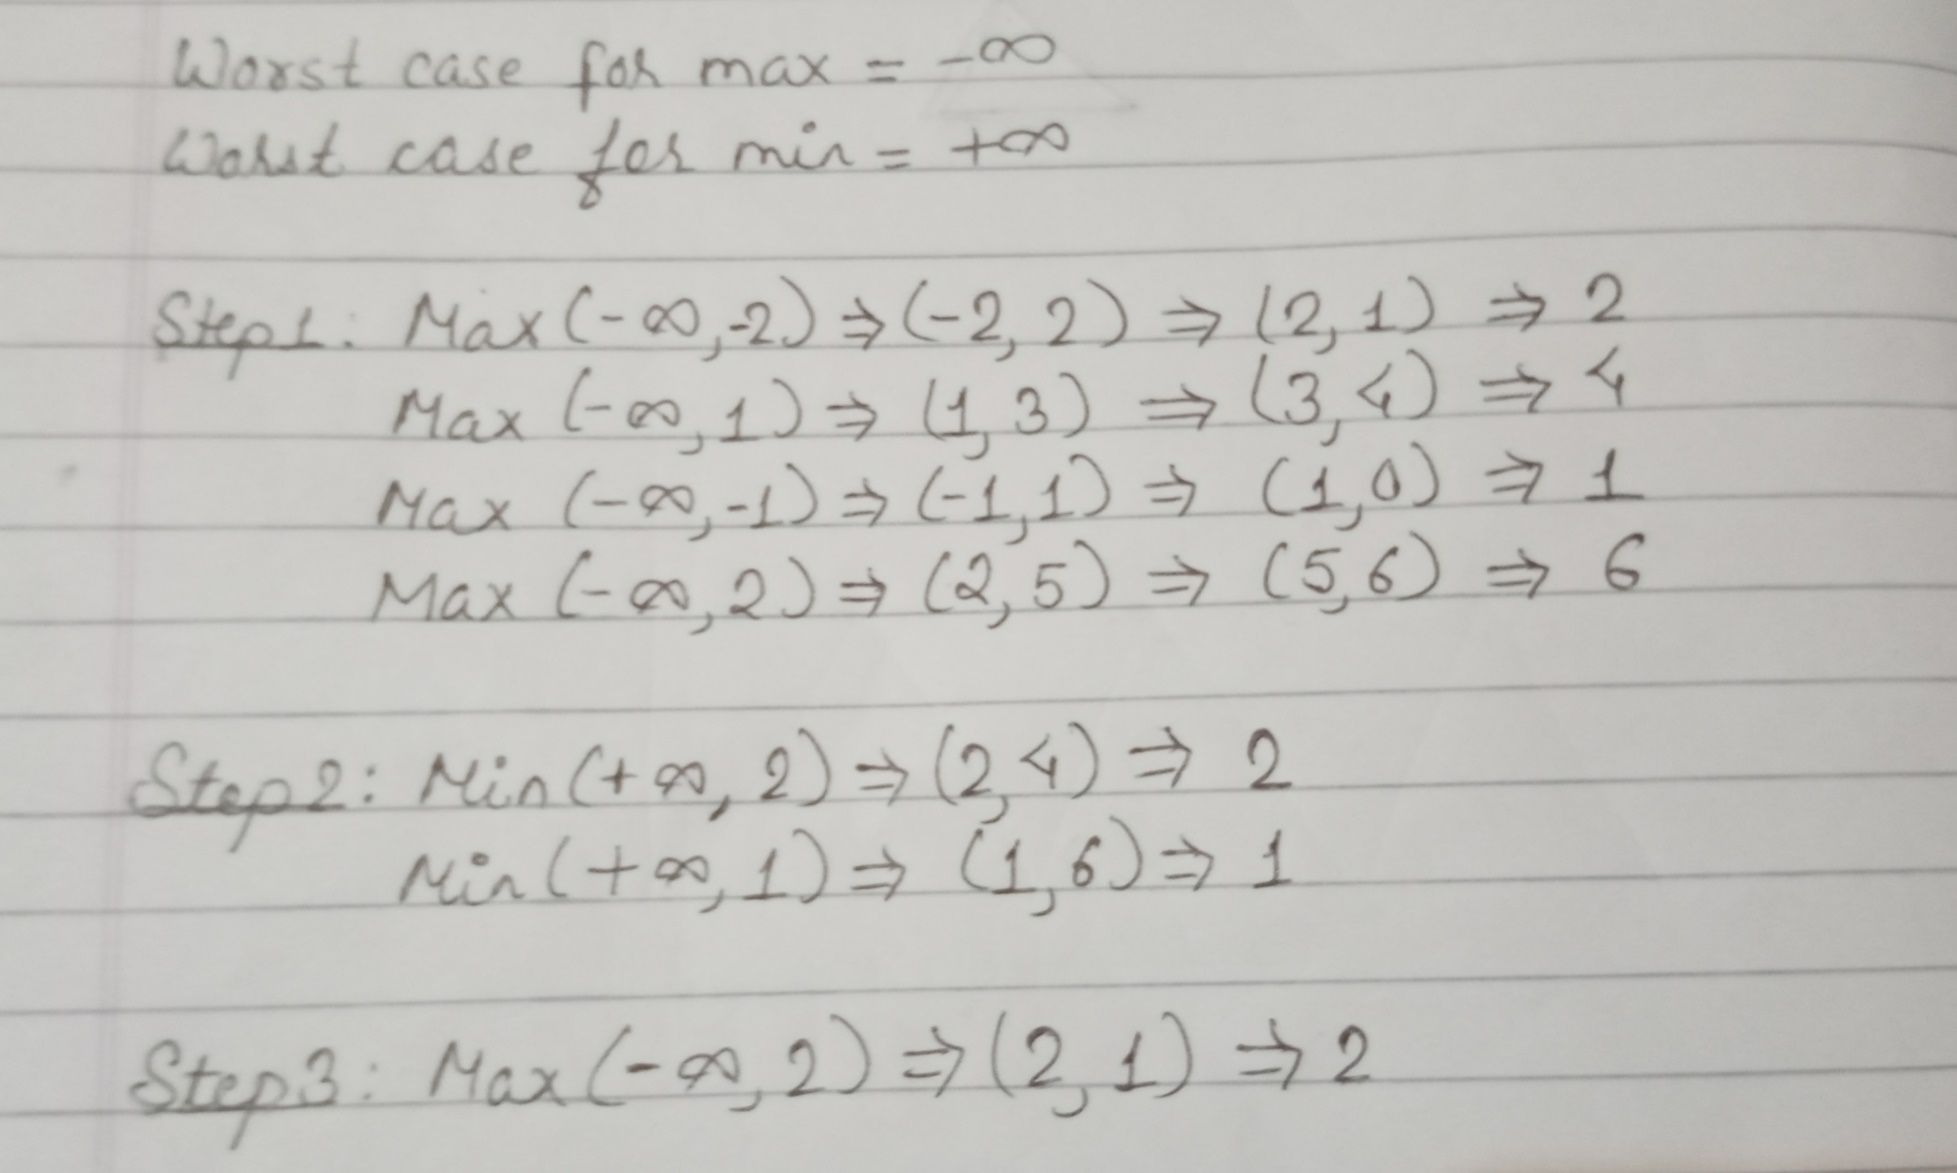 Worst case for max = -∞
Worst case for min = +∞
Step1: Max (-∞,-2) ⇒ (-2, 2) ⇒ (2, 1) ⇒ 2
Max (-∞, 1) ⇒ (1, 3) ⇒ (3, 4) ⇒ 4
Max (-∞,-1) ⇒ (-1, 1) ⇒ (1, 0) ⇒ 1
Max (-∞, 2) ⇒ (2, 5) ⇒ (5, 6) ⇒ 6
Step2: Min (+∞, 2) ⇒ (2, 4) ⇒ 2
Min (+∞, 1) ⇒ (1, 6) ⇒ 1
Step3: Max (-∞, 2) ⇒ (2, 1) ⇒ 2